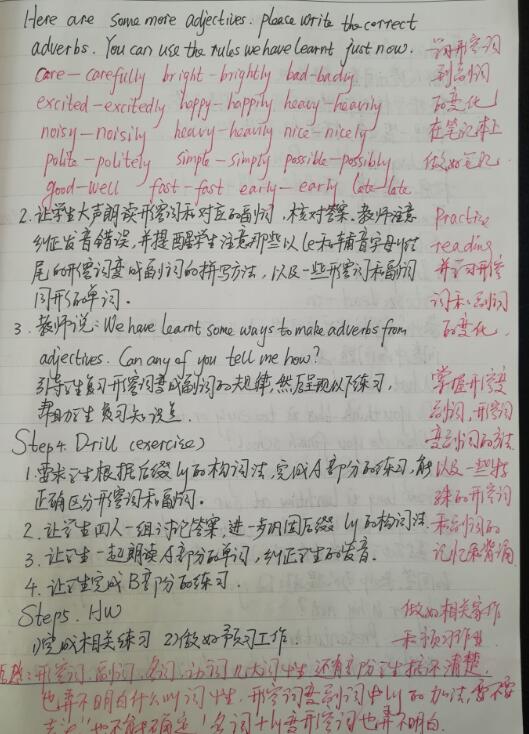 Here are some more adjectives. please write the correct
adverbs. You can use the rules we have learnt just now.
care—carefully bright—brightly bad—badly
excited—excitedly happy—happily heavy—heavily
noisy—noisily heavy—heavily nice—nicely
polite—politely simple—simply possible—possibly
good—well fast—fast early—early late—late
词形容词
到副词
的变化
在笔记本上
做好笔记
2. 让学生大声朗读形容词和对应的副词，核对答案。教师注意
纠正发音错误，并提醒学生注意那些以le和辅音字母y结
尾的形容词变成副词的拼写方法，以及一些形容词和副词
同形的单词。
Practise
reading
并词形容
词和副词
的变化
3. 教师说：We have learnt some ways to make adverbs from
adjectives. Can any of you tell me how?
引导学生复习形容词变成副词的规律，然后呈现以下练习，
帮助学生复习知识点.
Step 4. Drill (exercise)
1. 要求学生根据后缀ly的构词法，完成A部分的练习，能
正确区分形容词和副词。
2. 让学生四人一组讨论答案，进一步巩固后缀ly的构词法.
3. 让学生一起朗读A部分的单词，纠正学生的发音.
4. 让学生完成B部分的练习.
掌握形容变
副词，形容词
变副词的方法
以及一些特
殊的形容词
和副词的
记忆和背诵
Step 5. HW
1)完成相关练习 2)做好预习工作.
做好相关家作
和预习作业
形容词、副词、名词、动词几大词性还有部分学生搞不清楚，
也弄不明白什么叫词性. 形容词变副词中ly的加法，要不要
也不能确定！名词+ly变形容词也弄不明白.